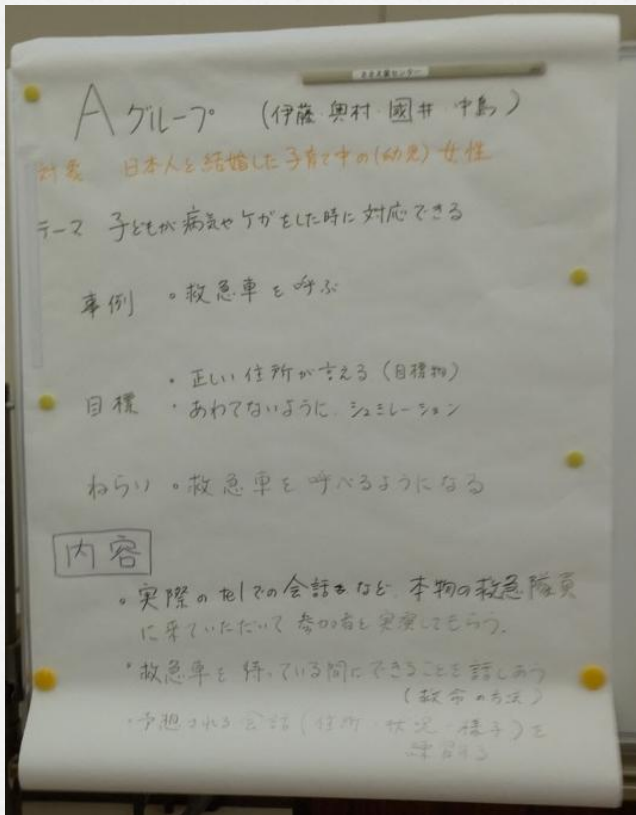 Aグループ (伊藤・奥村・國井・中島)
対象 日本人と結婚した子育て中の(幼児)女性
テーマ 子どもが病気やケガをした時に対応できる
事例 ・救急車を呼ぶ
・正しい住所が言える(目標物)
目標 ・あわてないように、シュミレーション
ねらい ・救急車を呼べるようになる
内容
・実際のtelでの会話など、本物の救急隊員
に来ていただいて参加者と実演してもらう。
・救急車を待っている間にできることを話しあう
(救命の方法)
・予想される会話(住所・状況・様子)を
練習する